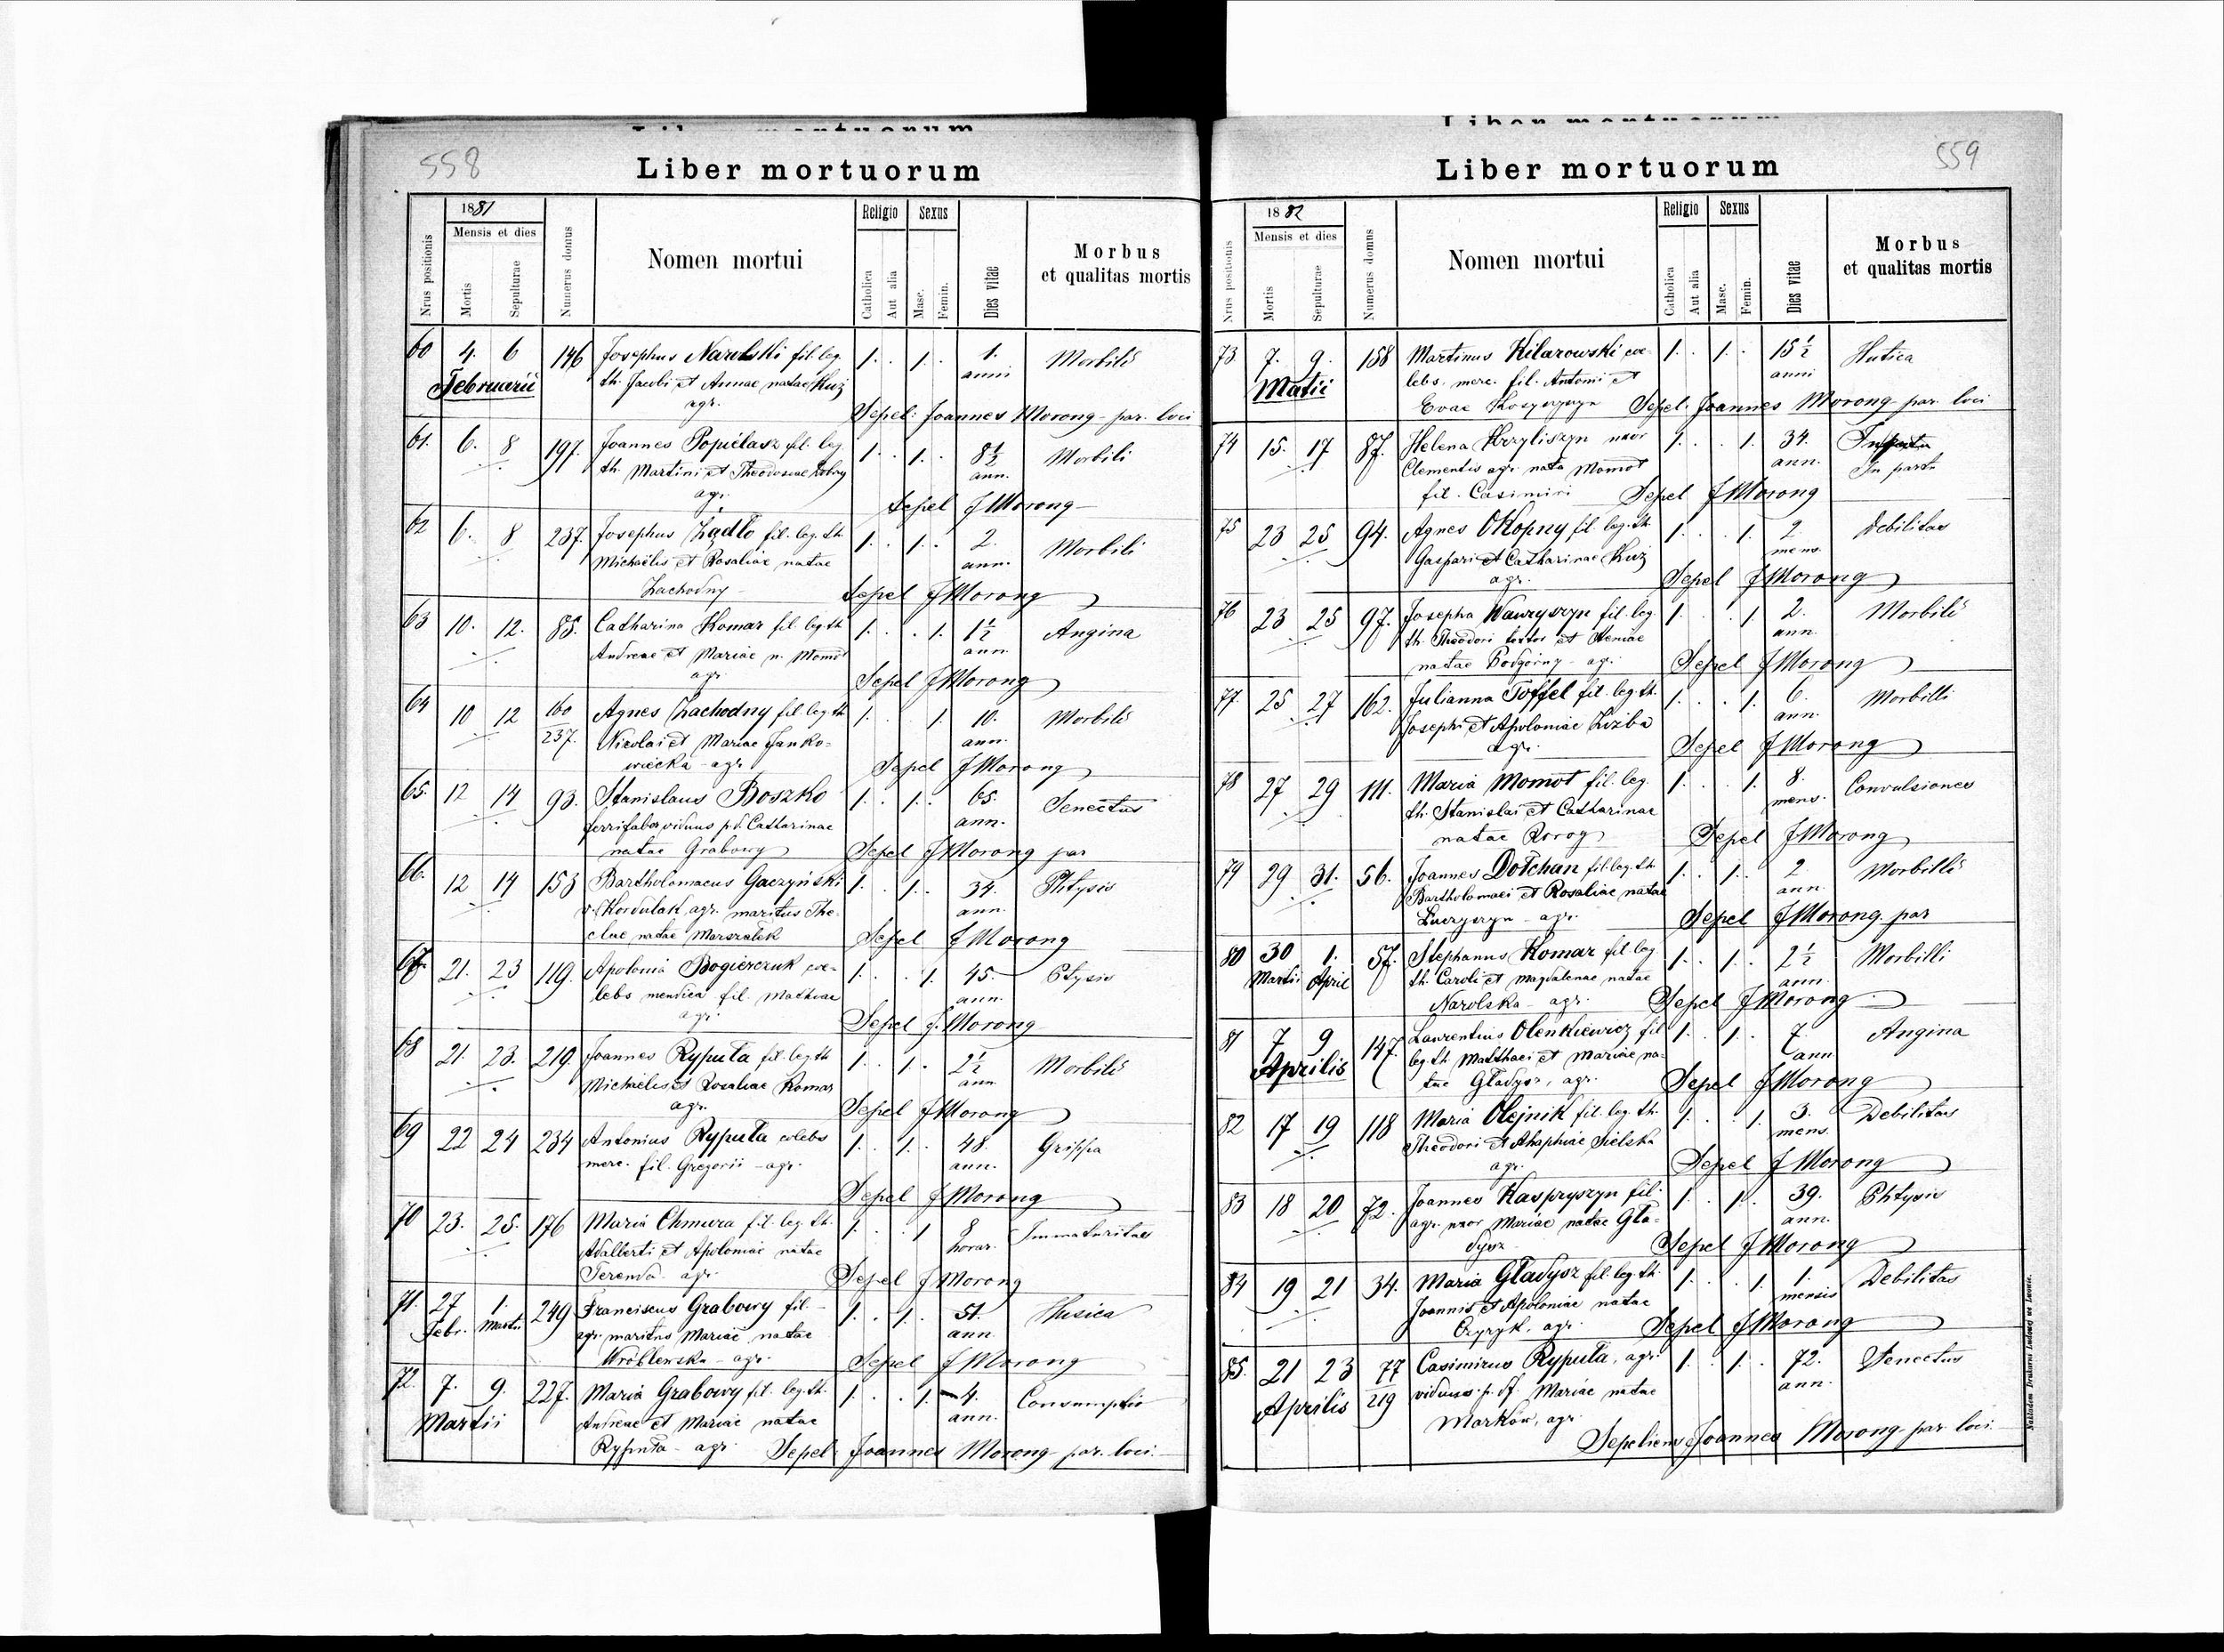 558
Liber mortuorum
Nrus positionis
1881
Mensis et dies
Mortis
Sepulturae
Numerus domus
Nomen mortui
Religio
Catholica
Aut alia
Sexus
Masc.
Femin.
Dies vitae
Morbus
et qualitas mortis
60 4. 6 146 Josephus Narolski fil. leg. 1. 1. 1. Morbili
Februarii th. Jacobi et Annae natae Kuź anni
agr. Sepel: Joannes Morong par. loci
61. 6. 8 197. Joannes Popiélasz fil. leg. 1. 1. 8½ Morbili
th. Martini et Theodosiae ann.
agr. Sepel J Morong
62 6. 8 237. Josephus Żądło fil. leg. th. 1. 1. 2. Morbili
Michaëlis et Rosaliae natae ann.
Zachodny Sepel J Morong
63 10. 12. 85. Catharina Komar fil. leg. th 1. 1. 1½ Angina
Andreae et Mariae n. Momot ann.
agr. Sepel J Morong
64 10 12 160 Agnes Zachodny fil. leg. th 1. 1. 10. Morbili
237. Nicolai et Mariae Janko= ann.
wiecka agr. Sepel J Morong
65. 12 14 93. Stanislaus Boszko 1. 1. 65. Senectus
ferrifaber viduus p. d. Catharinae ann.
natae Grabowy Sepel J Morong par
66. 12 14 153 Bartholomaeus Gaczyński 1. 1. 34. Phtysis
v. Kordulak agr. maritus The- ann.
clae natae Marszałek Sepel J Morong
67. 21. 23 119. Apolonia Bogierczuk coe- 1. 1. 45. Ptysis
lebs mendica fil. Mathiae ann.
agr. Sepel J. Morong
68 21. 23. 219. Joannes Ryputa fil. leg. th 1. 1. 2½ Morbili
Michaëlis et Rosaliae Komar ann.
agr. Sepel J Morong
69 22 24 234 Antonius Ryputa celebs 1. 1. 48. Grippa
merc. fil. Gregorii agr. ann.
Sepel J Morong
70 23. 25. 176 Maria Chmura fil. leg. th. 1. 1 8 Immaturitas
Adalberti et Apoloniae natae horar.
Terenda agr. Sepel J Morong
71. 27 1. 249 Franciscus Grabowy fil. 1. 1. 51. Husica
Febr. Martii agr. maritus Mariae natae ann.
Wróblewska agr. Sepel J Morong
72. 7. 9. 227. Maria Grabowy fil. leg. th. 1. 1. 4. Consumptio
Martii Andreae et Mariae natae ann.
Ryputa agr. Sepel Joannes Morong par. loci
559
Liber mortuorum
Nrus positionis
1882
Mensis et dies
Mortis
Sepulturae
Numerus domus
Nomen mortui
Religio
Catholica
Aut alia
Sexus
Masc.
Femin.
Dies vitae
Morbus
et qualitas mortis
73. 7. 9. 158 Martinus Kilarowski coe- 1. 1. 15½ Hutica
Matii lebs. merc. fil. Antoni et anni
Evae Sepel. Joannes Morong par. loci
74 15. 17 87. Helena Krzyliszyn uxor 1. 1. 34.
Clementis agr. nata Momot ann. In partu
fil. Casimiri Sepel J Morong
75 23 25 94. Agnes Okopny fil. leg. th. 1. 1. 2 Debilitas
Gaspari et Catharinae Kuź mens.
agr. Sepel J Morong
76 23 25 97. Josepha Wawryszyn fil. leg. 1. 1. 2. Morbili
th. Theodori et Xeniae ann.
natae Podgórny agr. Sepel J Morong
77. 25 27 162. Julianna Toffel fil. leg. th. 1. 1. 6. Morbilli
Josephi et Apoloniae Liźba ann.
agr. Sepel J Morong
78 27 29 111. Maria Momot fil. leg. 1. 1. 8. Convulsiones
th. Stanislai et Catharinae mens.
natae Rorog Sepel J Morong
79 29 31. 56. Joannes Dołchan fil. leg. th. 1. 1. 2 Morbilli
Bartholomaei et Rosaliae natae ann.
Łuczyszyn agr. Sepel J Morong. par
80 30 1. 57. Stephanus Komar fil. leg. 1. 1. 2½ Morbilli
Martii April th. Caroli et Magdalenae natae ann.
Narolska agr. Sepel J Morong
81 7 9 147. Laurentius Olenkiewicz fil 1. 1. 7. Angina
Aprilis leg. th. Matthaei et Mariae na- ann
tae Gładysz, agr. Sepel J Morong
82 17 19 118 Maria Olejnik fil. leg. th. 1. 1. 3. Debilitas
Theodori et Ahaphiae Sielska mens.
agr. Sepel J Morong
83 18 20 72. Joannes Kaspryszyn fil. 1. 1. 39. Phtysis
agr. uxor Mariae natae Gła- ann.
dysz Sepel J Morong
84 19 21 34. Maria Gładysz fil. leg. th. 1. 1. 1. Debilitas
Joannis et Apoloniae natae mensis
Czyryk, agr. Sepel J Morong
85. 21 23 77 Casimirus Ryputa, agr. 1. 1. 72. Senectus
Aprilis 219 viduus p. df. Mariae natae ann.
Markow, agr.
Sepeliens Joannes Morong par loci.
Nakładem Drukarni Ludowej we Lwowie.